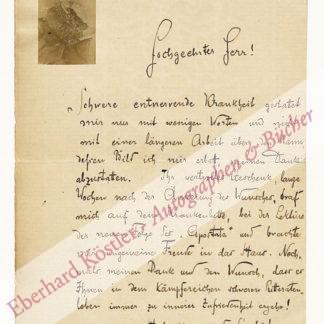 Hochgeehrter Herr!
Schwere entnervende Krankheit gestattet
mir nur mit wenigen Worten und nicht
mit einer längeren Arbeit über
dessen Bild ich mir erbat, meinen Dank
abzustatten. Ihr Geschenk, lange
Wochen nach der des Wunsches, traf
mich auf dem Krankenbette, bei der Lektüre
der neuen Folge der "Apostata" und brachte
ungemeine Freude in das Haus. Noch
mals meinen Dank und den Wunsch, dass es
Ihnen in dem kämpfereichen schweren Literaten-
leben immer zu innerer Zufriedenheit ergehe!
Eberhard Köstler - Autographen & Bücher